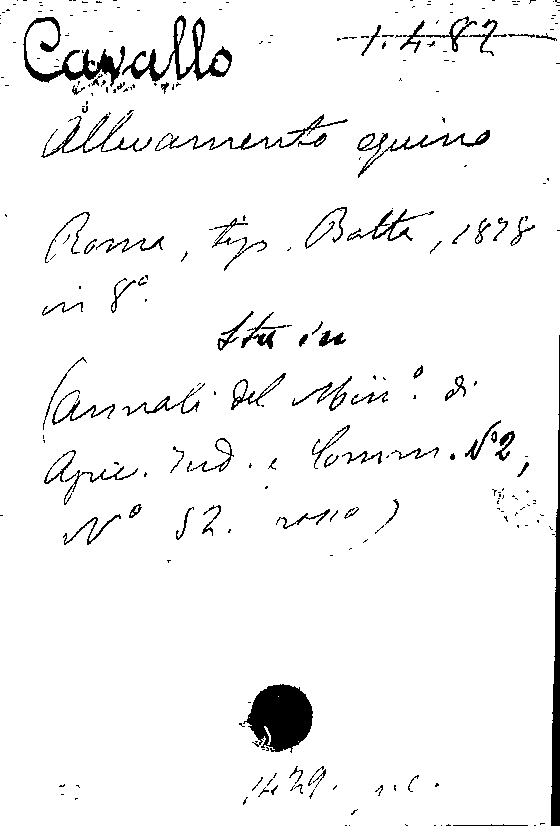 Cavallo 1.4.82
Allevamento equino
Roma, tip. Botta, 1878
in 8°.
Sta in
(Annali del Min°. di
Agric. Ind. e Comm. N° 2,
N° 52. rosso)
1429. n.c.